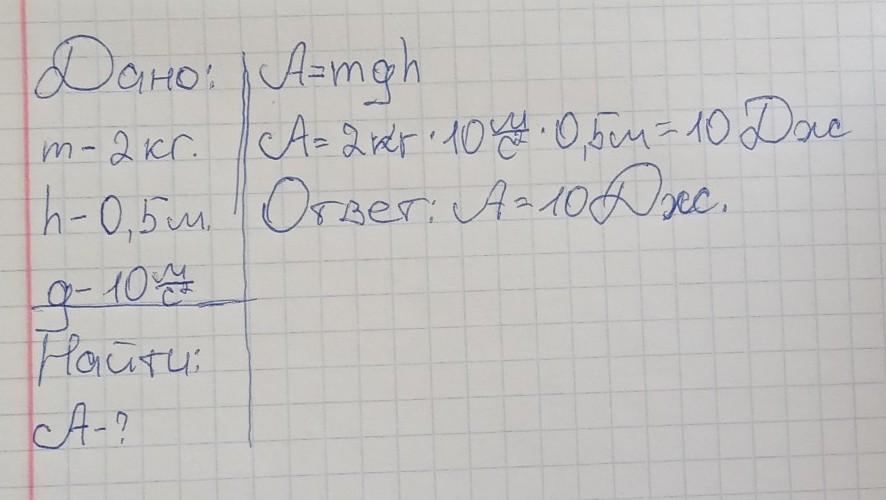 Дано:
m - 2 кг.
h - 0,5 м.
g - 10 м/с²
Найти:
A - ?
A = mgh
A = 2 кг · 10 м/с² · 0,5 м = 10 Дж
Ответ: A = 10 Дж.